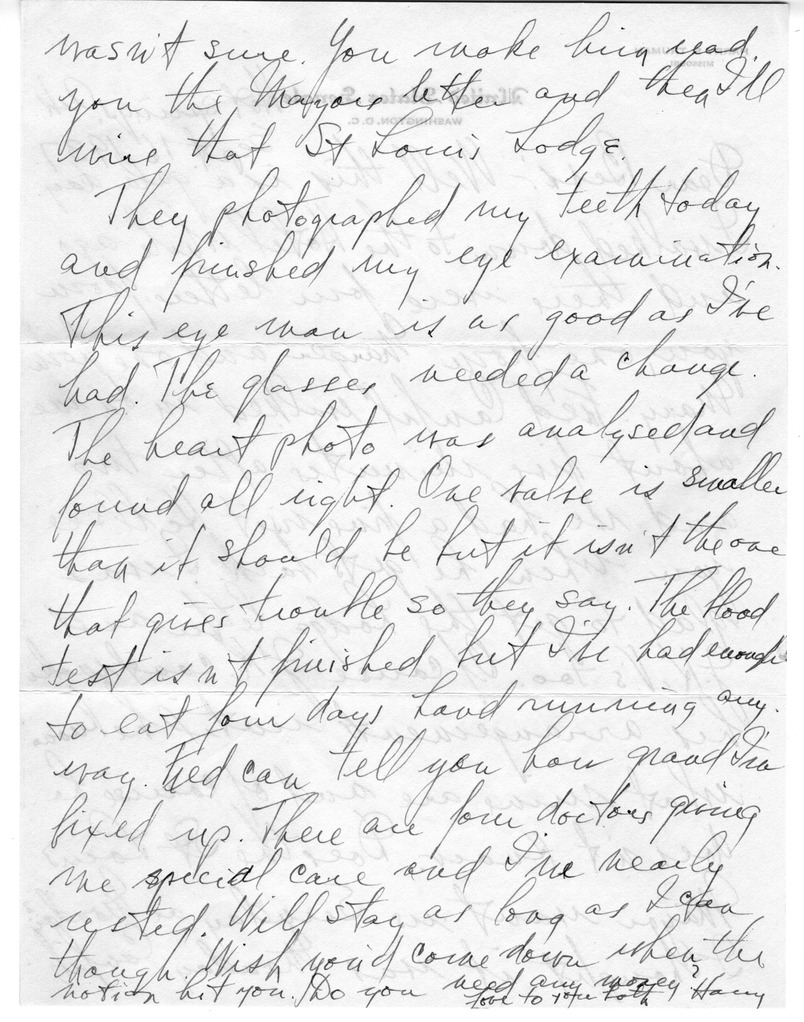 wasn't sure. You make him read
you the Mayors letter and then I'll
wire that St Louis Lodge.
They photographed my teeth today
and finished my eye examination.
This eye man is as good as I've
had. The glasses needed a change.
The heart photo was analysed and
found all right. One valve is smaller
than it should be but it isn't the one
that gives trouble so they say. The blood
test isn't finished but I've had enough
to eat four days hand running any-
way. Fred can tell you how grand I'm
fixed up. There are four doctors giving
me special care and I'm nearly
rested. Will stay as long as I can
though. Wish you'd come down when the
notion hit you. Do you need any money?
Love to you both Harry